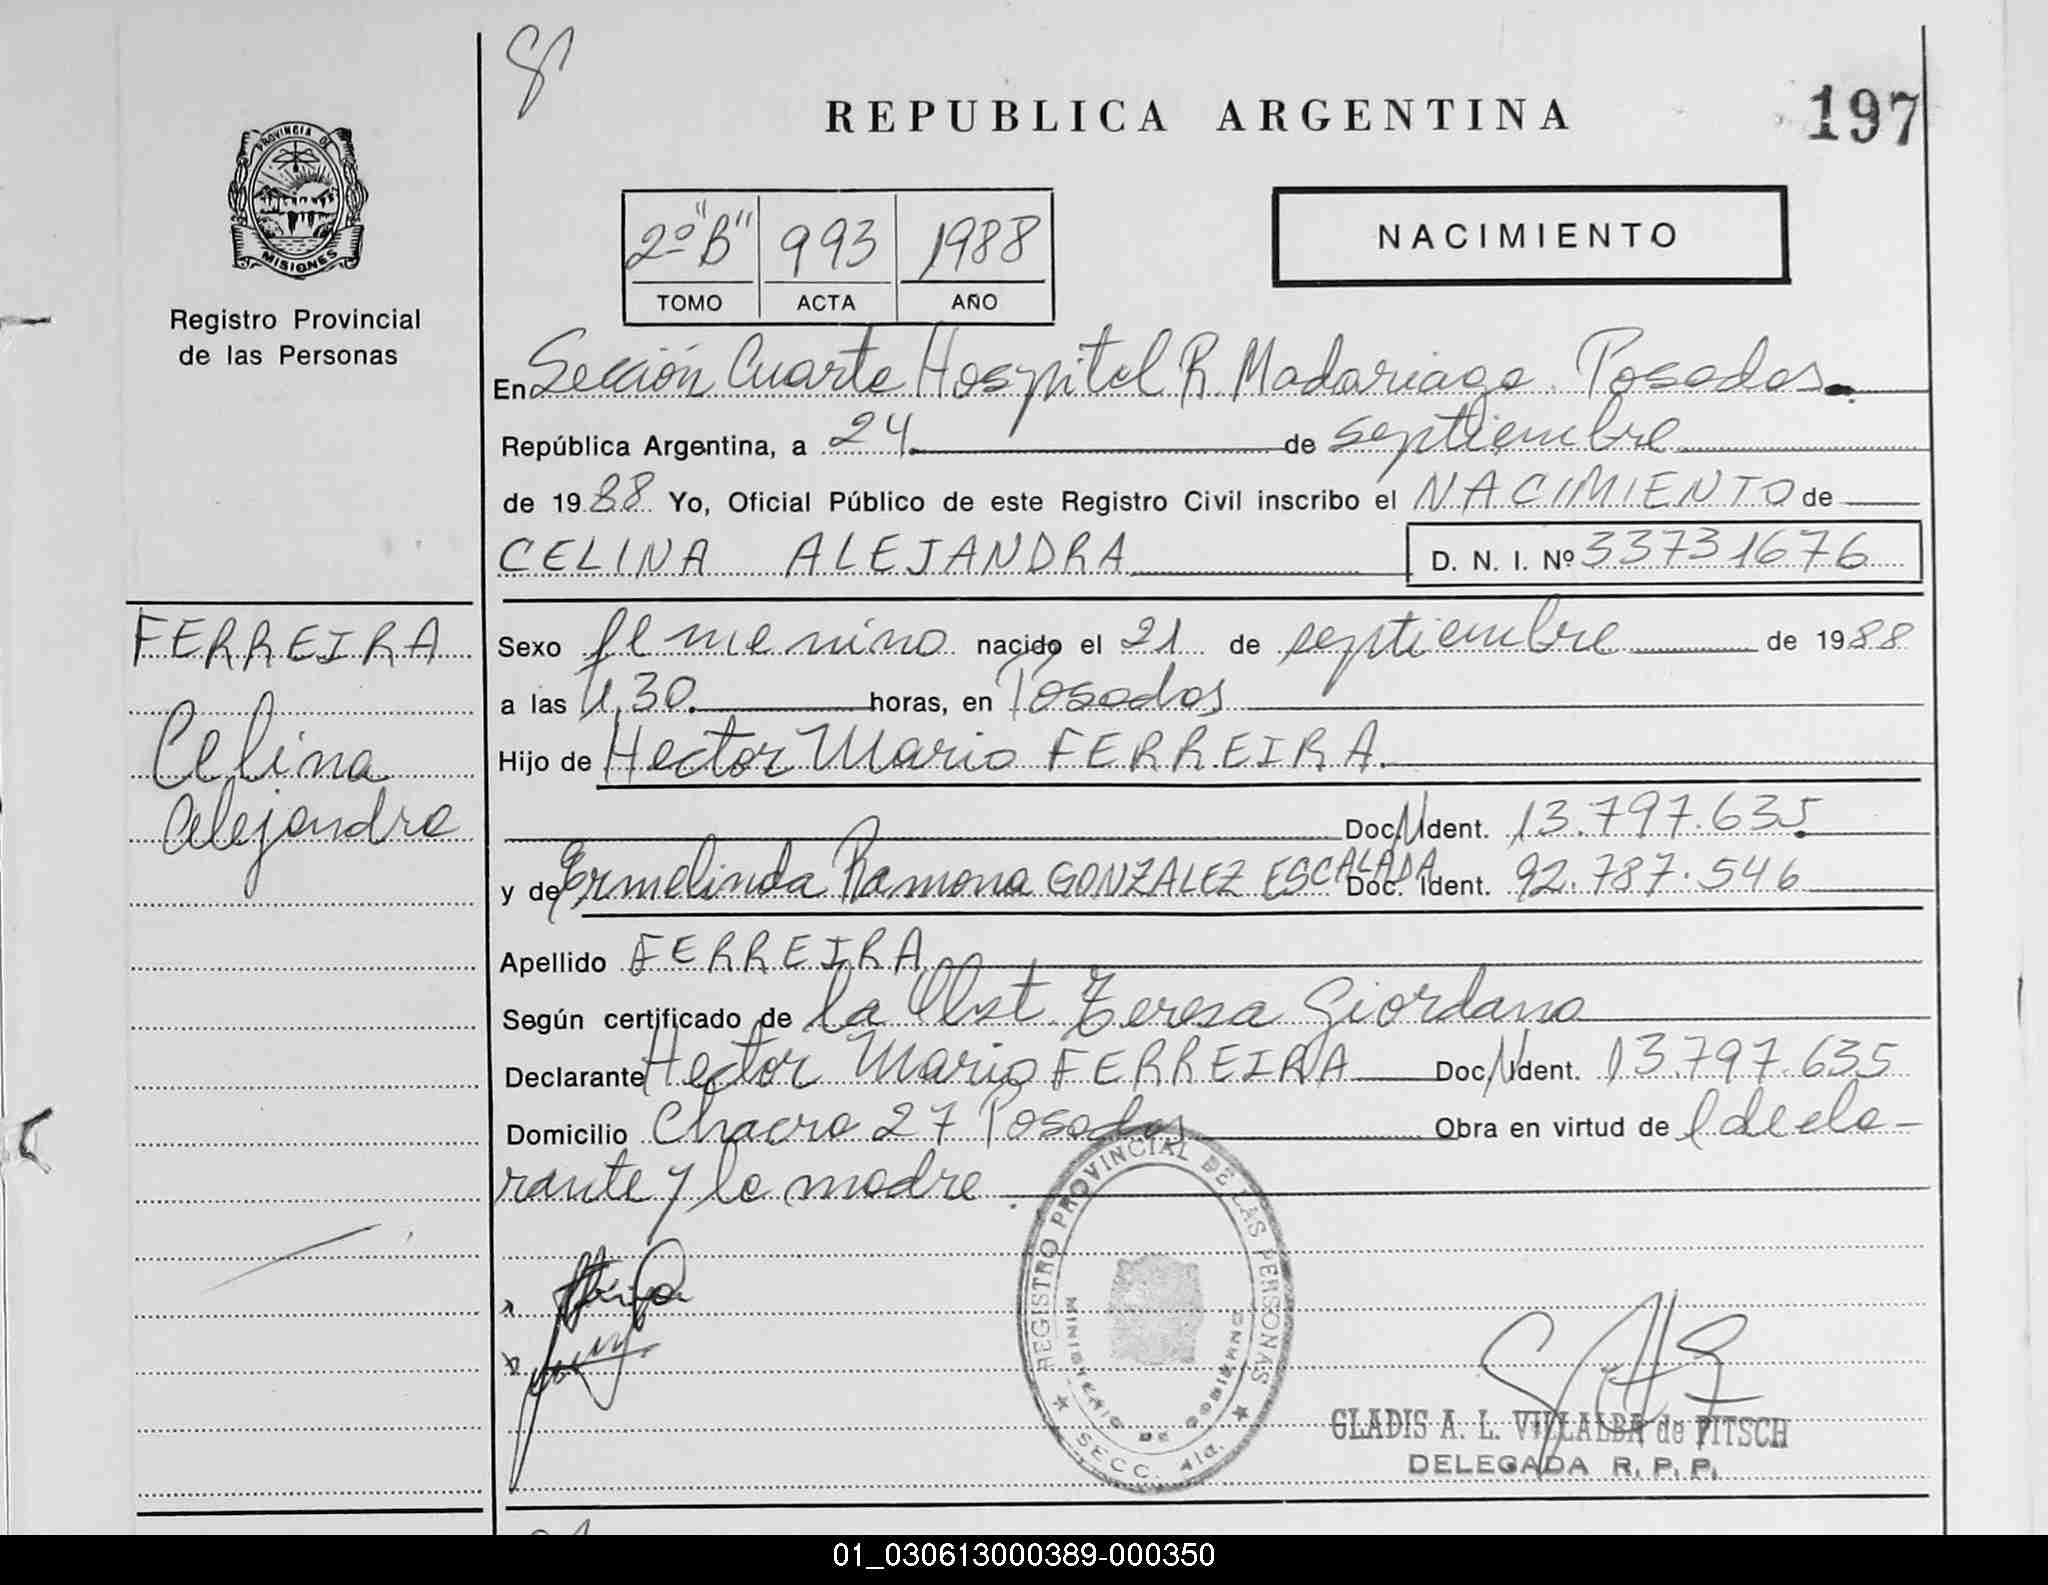 REPUBLICA ARGENTINA
197
PROVINCIA DE
MISIONES
Registro Provincial
de las Personas
2º "B" 993 1988
TOMO ACTA AÑO
NACIMIENTO
En Sección Cuarta Hospital R. Madariaga. Posadas.
República Argentina, a 24 de septiembre
de 1988 Yo, Oficial Público de este Registro Civil inscribo el NACIMIENTO de
CELINA ALEJANDRA D. N. I. Nº 33731676
FERREIRA
Celina
Alejandra
Sexo femenino nacido el 21 de septiembre de 1988
a las 4,30 horas, en Posadas
Hijo de Hector Mario FERREIRA.
Doc. N Ident. 13.797.635
y de Ermelinda Ramona GONZALEZ ESCALADA Doc. Ident. 92.787.546
Apellido FERREIRA
Según certificado de la Obst. Teresa Giordano
Declarante Hector Mario FERREIRA Doc. N Ident. 13.797.635
Domicilio Chacra 27 Posadas Obra en virtud de l decla-
rante y la madre.
REGISTRO PROVINCIAL DE LAS PERSONAS
MINISTERIO DE GOBIERNO
SECC. 4ta.
GLADIS A. L. VILLALBA de PITSCH
DELEGADA R. P. P.
01_030613000389-000350